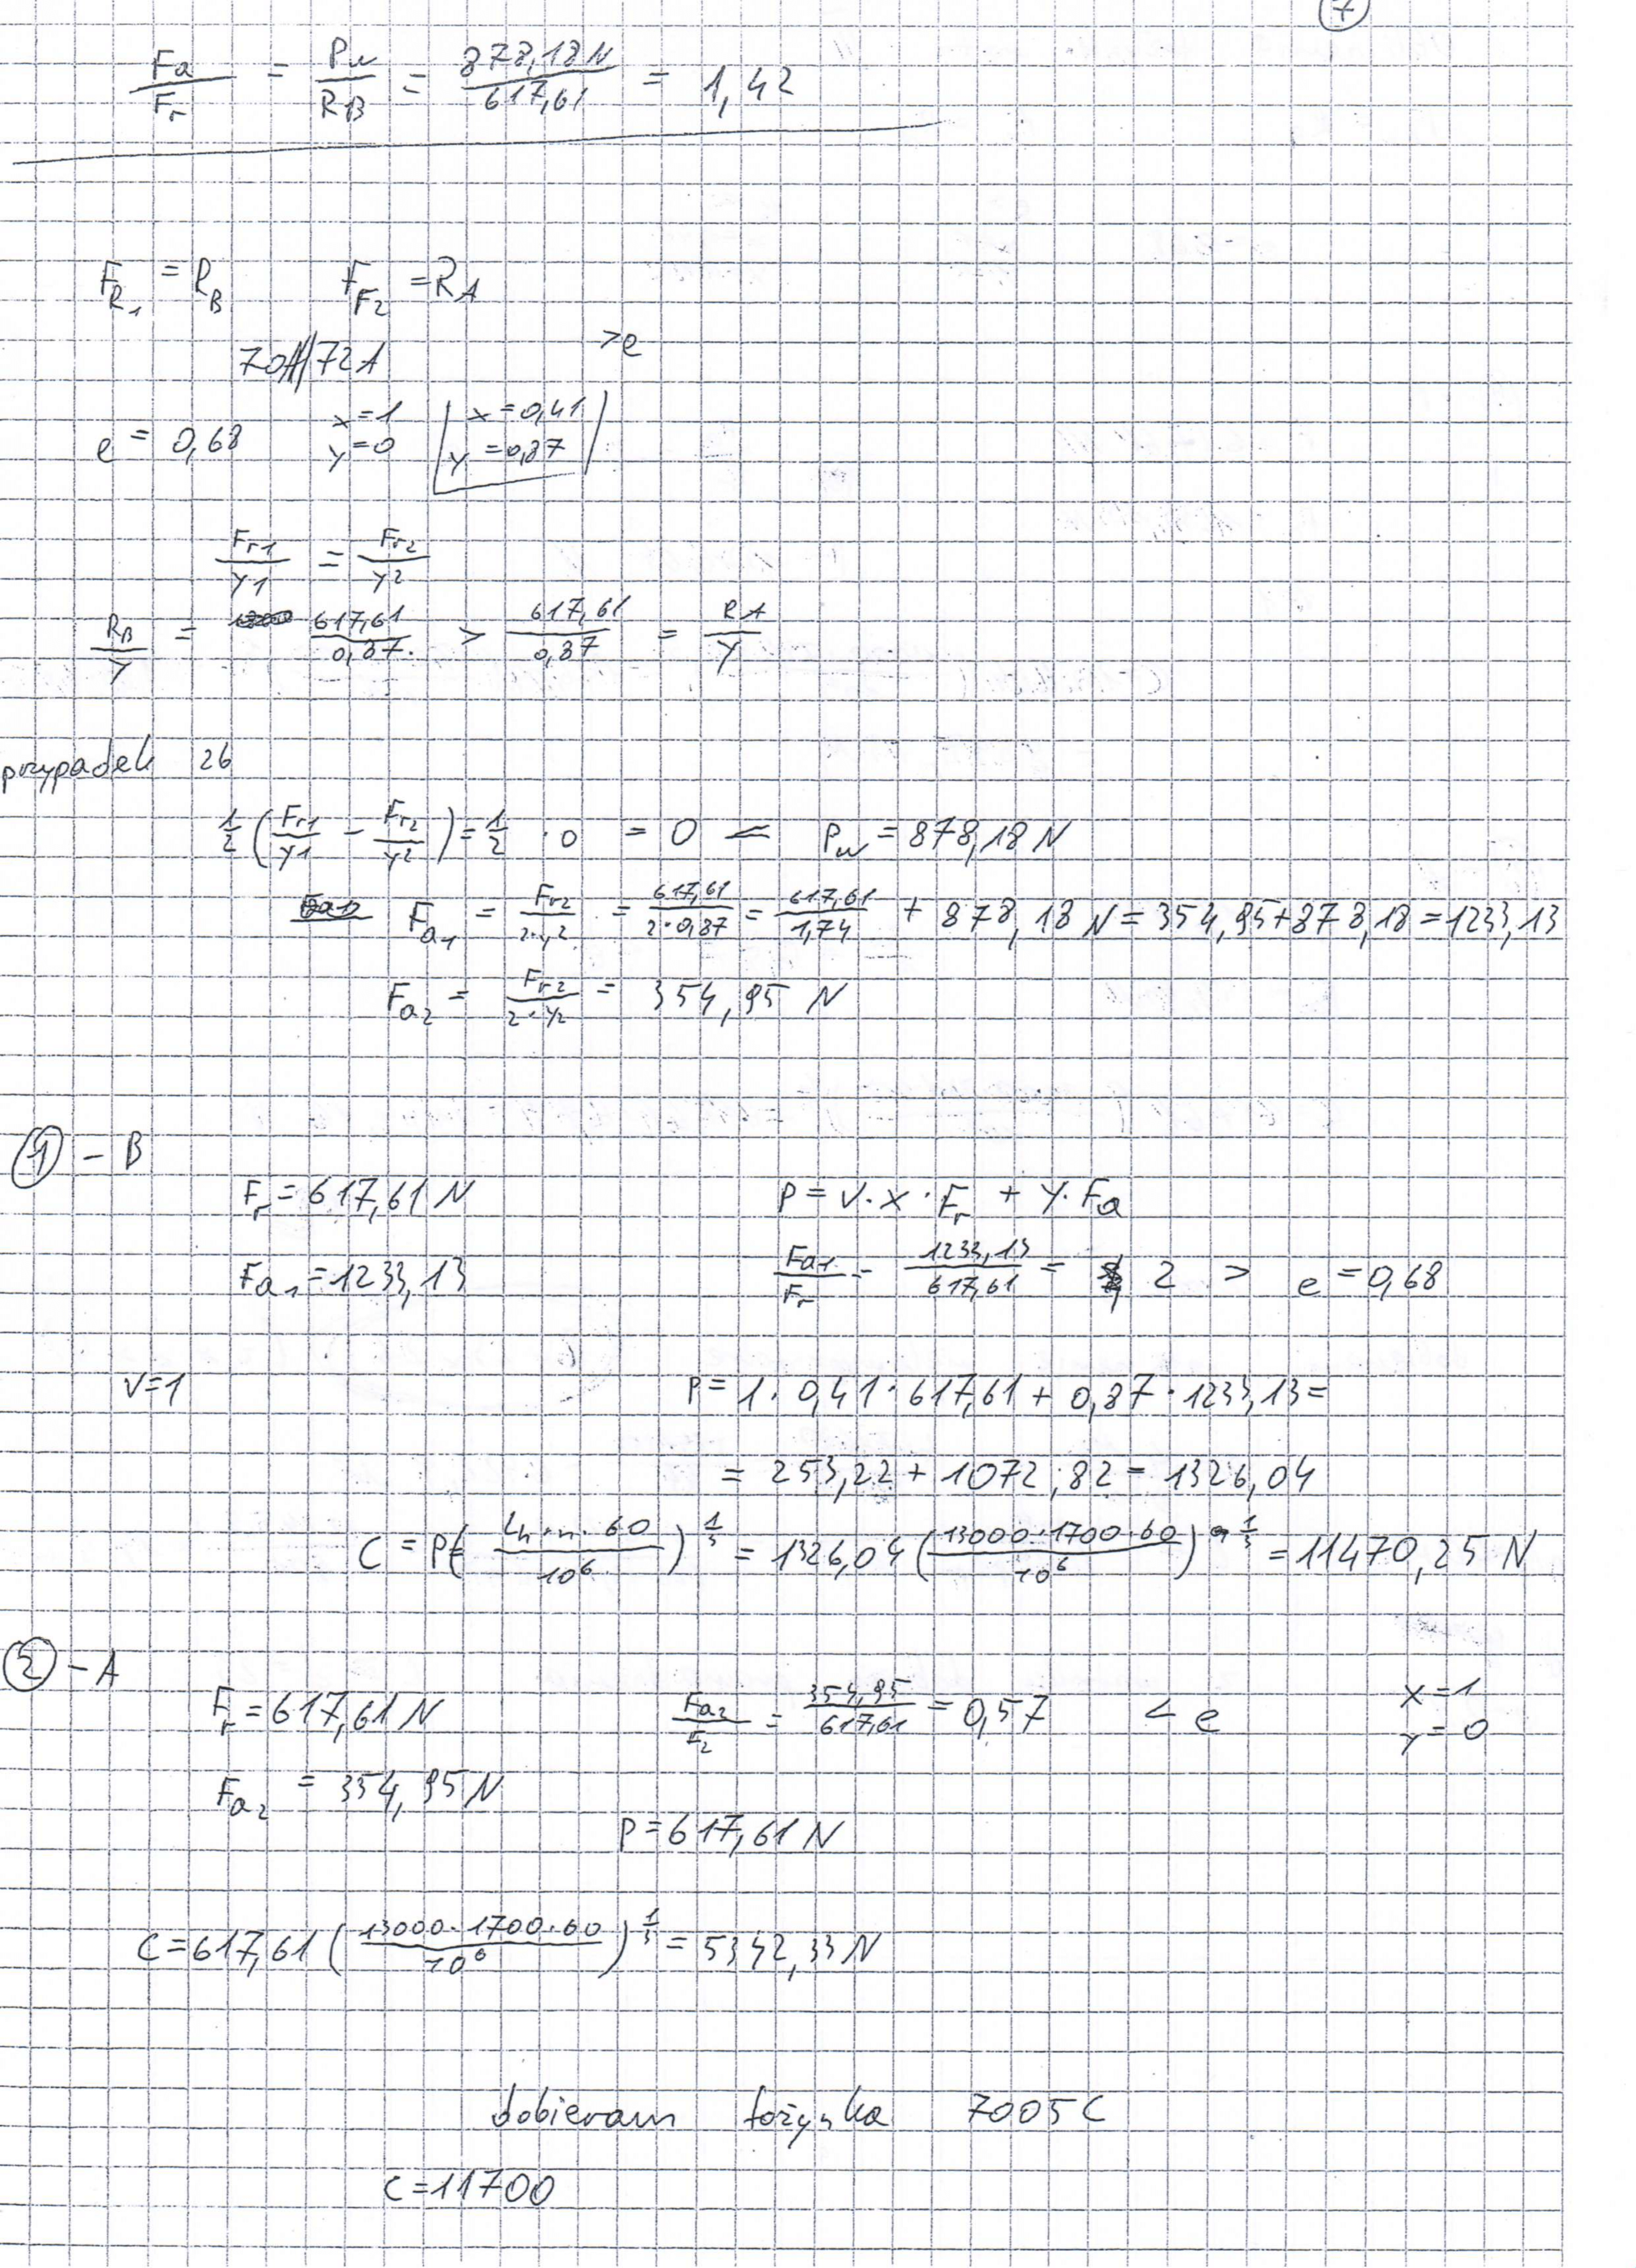 7
Fa/Fr = Pw/RB = 878,18 N/617,61 = 1,42
FR1 = RB FF2 = RA
>e
e = 0,68 x=1 y=0 x=0,41 y=0,87
Fr1/y1 = Fr2/y2
RB/y = 617,61/0,87 > 617,61/0,87 = RA/y
przypadek 2b
1/2 (Fr1/y1 - Fr2/y2) = 1/2 · 0 = 0 < Pw = 878,18 N
Fa1 = Fr2/2·y2 = 617,61/2·0,87 = 617,61/1,74 + 878,18 N = 354,95+878,18 = 1233,13
Fa2 = Fr2/2·y2 = 354,95 N
① - B
Fr = 617,61 N P = V·x·Fr + y·Fa
Fa1 = 1233,13 Fa1/Fr = 1233,13/617,61 = 2 > e = 0,68
V=1 P = 1·0,41·617,61 + 0,87·1233,13 =
= 253,22 + 1072,82 = 1326,04
C = P(Lh·n·60/10^6)^1/3 = 1326,04 (13000·1700·60/10^6)^1/3 = 11470,25 N
② - A
Fr = 617,61 N Fa2/F2 = 354,95/617,61 = 0,57 < e x=1 y=0
Fa2 = 354,95 N
P = 617,61 N
C = 617,61 (13000·1700·60/10^6)^1/3 = 5342,33 N
dobieram łożyska 7005C
C = 11700